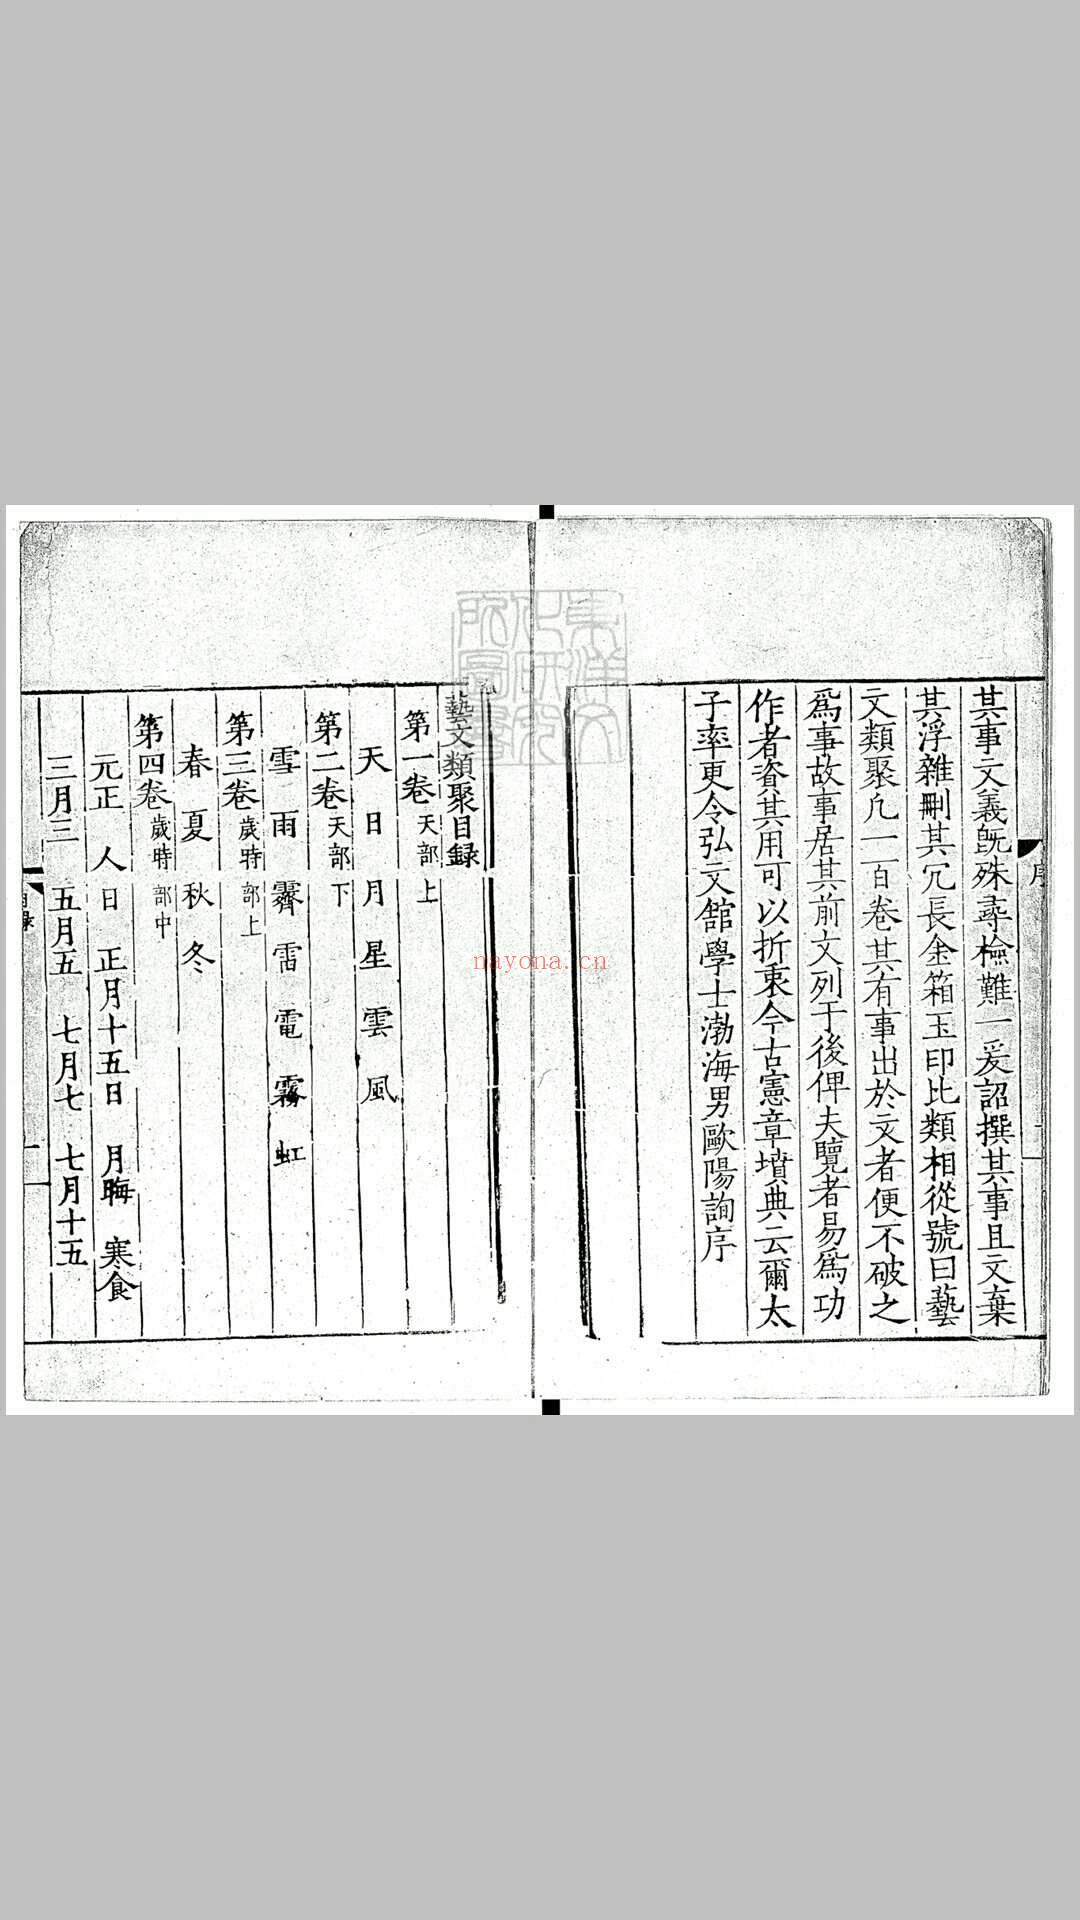 其事文義旣殊尋檢難一爰詔撰其事且文棄
其浮雜刪其冗長金箱玉印比類相從號曰藝
文類聚凡一百卷其有事出於文者便不破之
爲事故事居其前文列于後俾夫覽者易爲功
作者資其用可以折衷今古憲章墳典云爾太
子率更令弘文館學士渤海男歐陽詢序
序
藝文類聚目録
第一卷 天部上
天 日 月 星 雲 風
第二卷 天部下
雪 雨 霽 雷 電 霧 虹
第三卷 歲時部上
春 夏 秋 冬
第四卷 歲時部中
元正 人日 正月十五日 月晦 寒食
三月三 五月五 七月七 七月十五
目録
一
nayona.cn